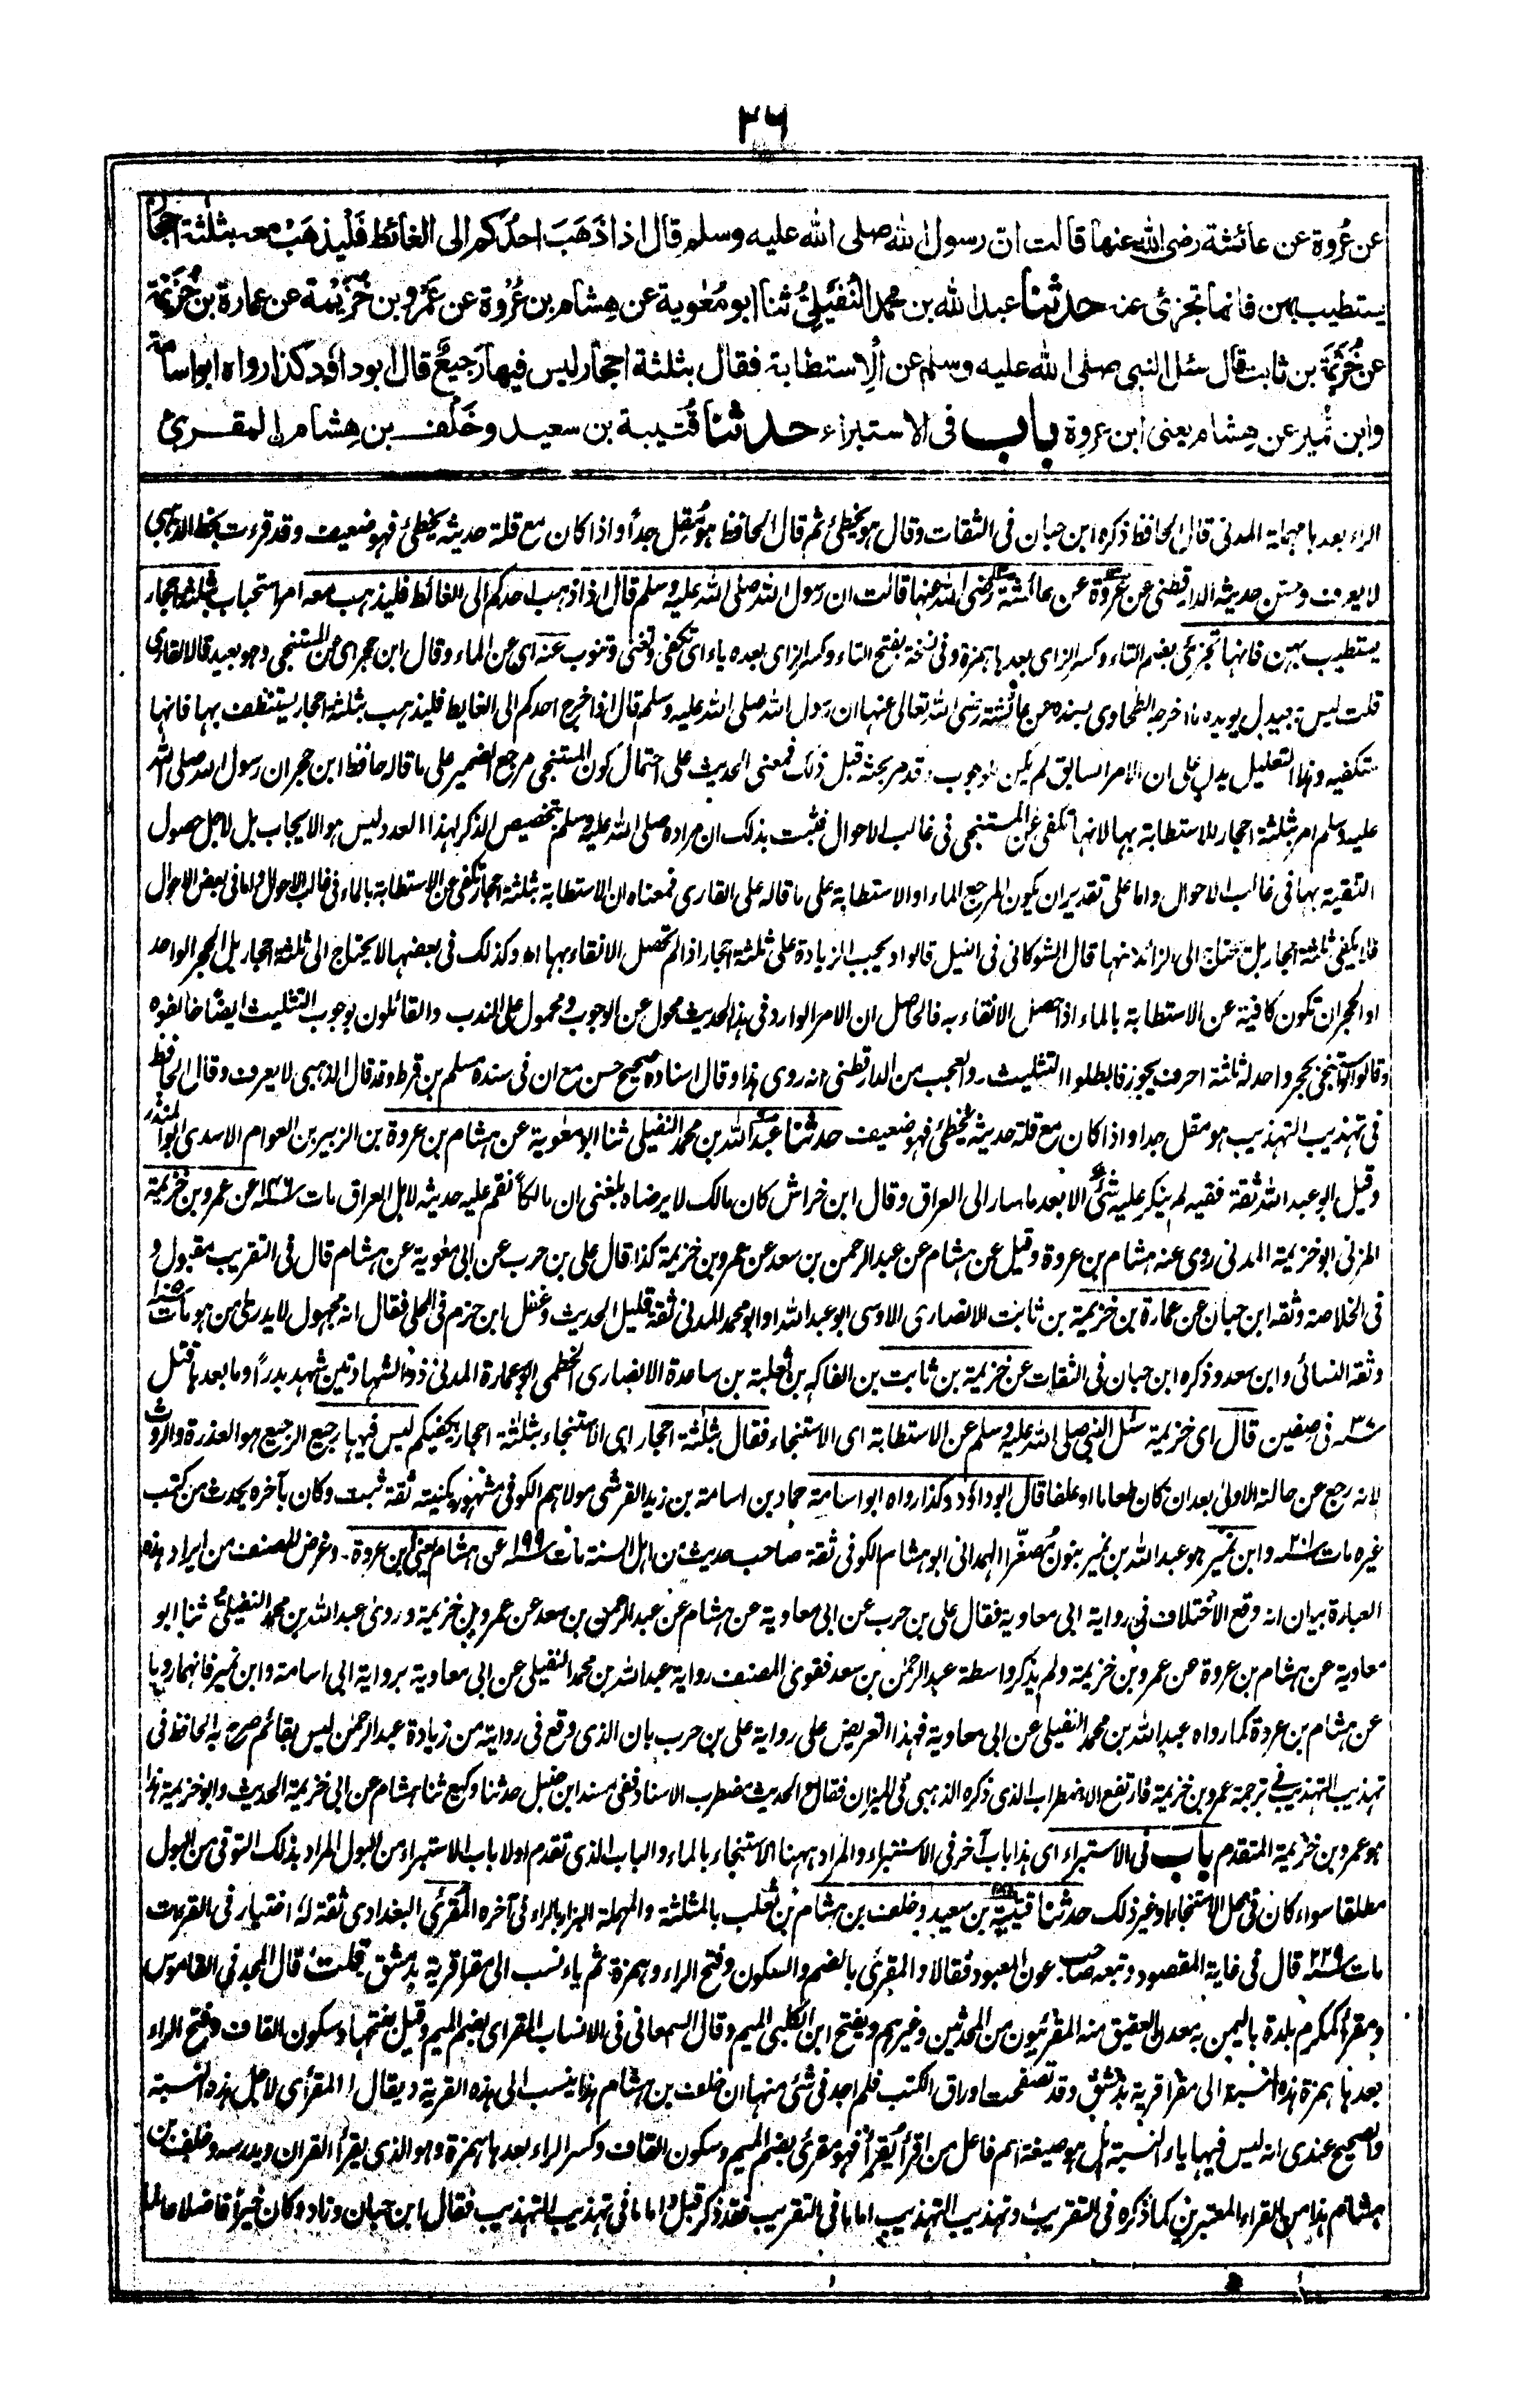 ٢٦
عن عُروة عن عائشة رضى الله عنها قالت انّ رسول الله صلى الله عليه وسلم قال اذا ذَهَبَ احدُكم الى الغائط فَلْيذهَبْ معه بثلثة احجارٍ
يستطيب بهن فانها تجزئ عنه حدثنا عبد الله بن محمد النُفَيلِيُّ ثنا ابو مُعٰوية عن هِشام بن عُرْوة عن عَمْرو بن خُزَيْمة عن عمارة بن خُزَيْمة
عن خُزَيْمَة بن ثابت قال سئل النبى صلى الله عليه وسلم عن الْاِستطابة فقال بثلثة احجار ليس فيها رَجيعٌ قال ابو داؤد كذا رواه ابو اسامة
وابن نُمير عن هِشام يعنى ابن عروة باب فى الاستبراء حدثنا قُتَيبة بن سعيد وخَلَف بن هِشام المقرئ
الراء بعدها مهملة المدنى قال الحافظ ذكره ابن حبان فى الثقات وقال هو يخطئ ثم قال الحافظ هو مُقِل جدًا واذا كان مع قلة حديثه يخطئ فهو ضعيف وقد قرءت بخط الذهبى
لا يعرف وحسن حديثه الدارقطنى عن عروة عن عائشة رضى الله عنها قالت ان رسول الله صلى الله عليه وسلم قال اذا ذهب احدكم الى الغائط فليذهب معه امر استحباب بثلثة احجار
يستطيب بهن فانها تجزئ بضم التاء وكسر الزاى بعدها همزة وفى نسخة بفتح التاء وكسر الزاى بعده ياء اى تكفى وتغنى وتنوب عنه اى عن الماء وقال ابن حجر اى عن المستنجى وهو بعيد قاله القارى
قلت ليس ببعيد بل يؤيده ما اخرجه الطحاوى بسنده عن عائشة رضى الله تعالى عنها ان رسول الله صلى الله عليه وسلم قال اذا خرج احدكم الى الغايط فليذهب بثلثة احجار يستنظف بها فانها
ستكفيه وهذا التعليل يدل على ان الامر السابق لم يكن للوجوب وقد مر بحثه قبل ذلك فمعنى الحديث على احتمال كون المستنجى مرجع الضمير على ما قاله حافظ ابن حجر ان رسول الله صلى الله
عليه وسلم امر بثلثة احجار للاستطابة بها لانها تكفى عن المستنجى فى غالب الاحوال فثبت بذلك ان مراده صلى الله عليه وسلم بتخصيص الذكر لهذا العدد ليس هو الايجاب بل لاجل حصول
التنقية بها فى غالب الاحوال واما على تقدير ان يكون المرجع الماء او الاستطابة على ما قاله على القارى فمعناه ان الاستطابة بثلثة احجار تكفى عن الاستطابة بالماء فى غالب الاحوال واما فى بعض الاحوال
فلا يكفى ثلثة احجار بل تحتاج الى الزائد منها قال الشوكانى فى النيل قالوا ويجب الزيادة على ثلثة احجار اذا لم تحصل الانقاء بها اه وكذلك فى بعضها لا يحتاج الى ثلثة احجار بل الحجر الواحد
او الحجران تكون كافية عن الاستطابة بالماء اذا حصل الانقاء به فالحاصل ان الامر الوارد فى هذا الحديث محول عن الوجوب ومحمول على الندب والقائلون بوجوب التثليث ايضًا خالفوه
وقالوا لو استنجى بحجر واحد له ثلثة احرف يجوز فابطلوا التثليث۔ والعجب من الدارقطنى انه روى هذا وقال اسناده صحيح حسن مع ان فى سنده مسلم بن قرط وقد قال الذهبى لا يعرف وقال الحافظ
فى تهذيب التهذيب هو مقل جدا واذا كان مع قلة حديثه يخطئ فهو ضعيف حدثنا عبد الله بن محمد النفيلى ثنا ابو معٰوية عن هشام بن عروة بن الزبير بن العوام الاسدى ابو المنذر
وقيل ابو عبد الله ثقة فقيه لم ينكر عليه شئ الا بعد ما سار الى العراق وقال ابن خراش كان مالك لا يرضاه بلغنى ان مالكًا نقم عليه حديثه لاهل العراق مات ١٤٦ه عن عمرو بن خزيمة
المزنى ابو خزيمة المدنى روى عنه هشام بن عروة وقيل عن هشام عن عبد الرحمن بن سعد عن عمرو بن خزيمة كذا قال على بن حرب عن ابى معٰوية عن هشام قال فى التقريب مقبول و
فى الخلاصة وثقه ابن حبان عن عمارة بن خزيمة بن ثابت الانصارى الاوسى ابو عبد الله او ابو محمد المدنى ثقة قليل الحديث وغفل ابن حزم فى المحلى فقال انه مجهول لا يدرى من هو مات ١٠٥ه
وثقه النسائى وابن سعد وذكره ابن حبان فى الثقات عن خزيمة بن ثابت بن الفاكه بن ثعلبة بن ساعدة الانصارى الخطمى ابو عمارة المدنى ذو الشهادتين شهد بدرًا وما بعدها قتل
٣٧ه فى صفين قال اى خزيمة سئل النبى صلى الله عليه وسلم عن الاستطابة اى الاستنجاء فقال بثلثة احجار اى الاستنجاء بثلثة احجار يكفيكم ليس فيها رجيع الرجيع هو العذرة والروث
لانه رجع عن حالته الاولى بعد ان كان طعاما او علفا قال ابو داؤد وكذا رواه ابو اسامة حماد بن اسامة بن زيد القرشى مولاهم الكوفى مشهور بكنيته ثقة ثبت وكان بآخره يحدث من كتب
غيره مات ٢٠١ه وابن نمير هو عبد الله بن نمير بنون مُصغّرا الهمدانى ابو هشام الكوفى ثقة صاحب حديث من اهل السنة مات ١٩٩ه عن هشام يعنى ابن عروة۔ وغرض المصنف من ايراد هذه
العبارة بيان انه وقع الاختلاف فى رواية ابى معاوية فقال على بن حرب عن ابى معاوية عن هشام عن عبد الرحمن بن سعد عن عمرو بن خزيمة وروى عبد الله بن محمد النفيلى ثنا ابو
معاوية عن هشام بن عروة عن عمرو بن خزيمة ولم يذكر واسطة عبد الرحمٰن بن سعد فقوى المصنف رواية عبد الله بن محمد النفيلى عن ابى معاوية برواية ابى اسامة وابن نمير فانهما رويا
عن هشام بن عروة كما رواه عبد الله بن محمد النفيلى عن ابى معاوية فهذا التعريض على رواية على بن حرب بان الذى وقع فى روايته من زيادة عبد الرحمٰن ليس بقائم صرح به الحافظ فى
تهذيب التهذيب فى ترجمة عمرو بن خزيمة فارتفع الاضطراب الذى ذكره الذهبى فى الميزان فقال مع الحديث مضطرب الاسناد ففى مسند ابن حنبل حدثنا وكيع ثنا هشام عن ابى خزيمة الحديث وابو خزيمة هذا
هو عمرو بن خزيمة المتقدم باب فى الاستبراء اى هذا باب آخر فى الاستبراء والمراد ههنا الاستنجاء بالماء والباب الذى تقدم اولا باب الاستبراء من البول المراد بذلك التوقى من البول
مطلقا سواء كان فى محل الاستنجاء او غير ذلك حدثنا قتيبة بن سعيد وخلف بن هشام بن ثعلب بالمثلثة والمهملة البزار بالراء فى آخره المقرئ البغدادى ثقة له اختيار فى القرءات
مات ٢٢٩ه قال فى غاية المقصود وتبعه صاحب عون المعبود فقالا والمقرئ بالضم والسكون وفتح الراء وهمزة ثم ياء نسب الى مقرا قرية بدمشق قلت قال المجد فى القاموس
ومقرأ كمكرم بلدة باليمن به معدن العقيق منه المقرئيون من المحدثين وغيرهم ويفتح ابن الكلبى الميم وقال السمعانى فى الانساب المقراى بضم الميم وقيل بفتحها وسكون القاف وفتح الراء
بعدها همزة هذه النسبة الى مقرا قرية بدمشق وقد تصفحت اوراق الكتب فلم اجد فى شئ منها ان خلف بن هشام هذا ينسب الى هذه القرية ويقال المقرأى لاجل هذه النسبة
والصحيح عندى انه ليس فيها ياء النسبة بل هو صيغة اسم فاعل من اقرأ يُقرِأُ فهو مقرئ بضم الميم وسكون القاف وكسر الراء بعدها همزة وهو الذى يقرأ القران ويدرسه وخلف بن
هشام هذا من القراء المعتبرين كما ذكره فى التقريب وتهذيب التهذيب اما ما فى التقريب فقد ذكر قبل واما ما فى تهذيب التهذيب فقال ابن حبان وزاد وكان خيرا فاضلا عالما